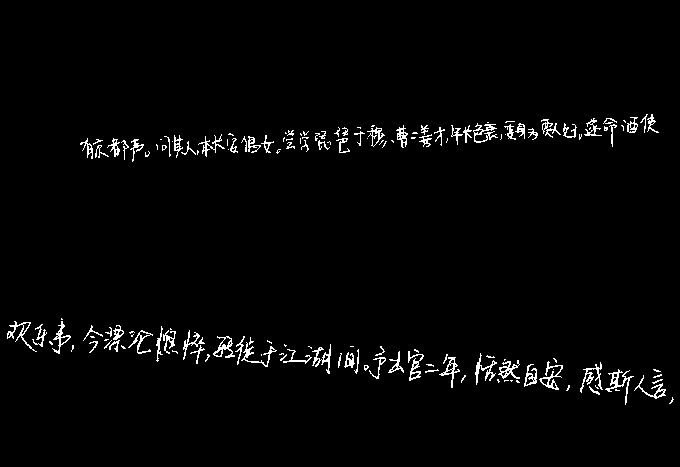 有京都声。问其人,本长安倡女。尝学琵琶于穆、曹二善才,年长色衰,委身为贾人妇,遂命酒使
欢乐事,今漂沦憔悴,转徙于江湖间。予出官二年,恬然自安,感斯人言,